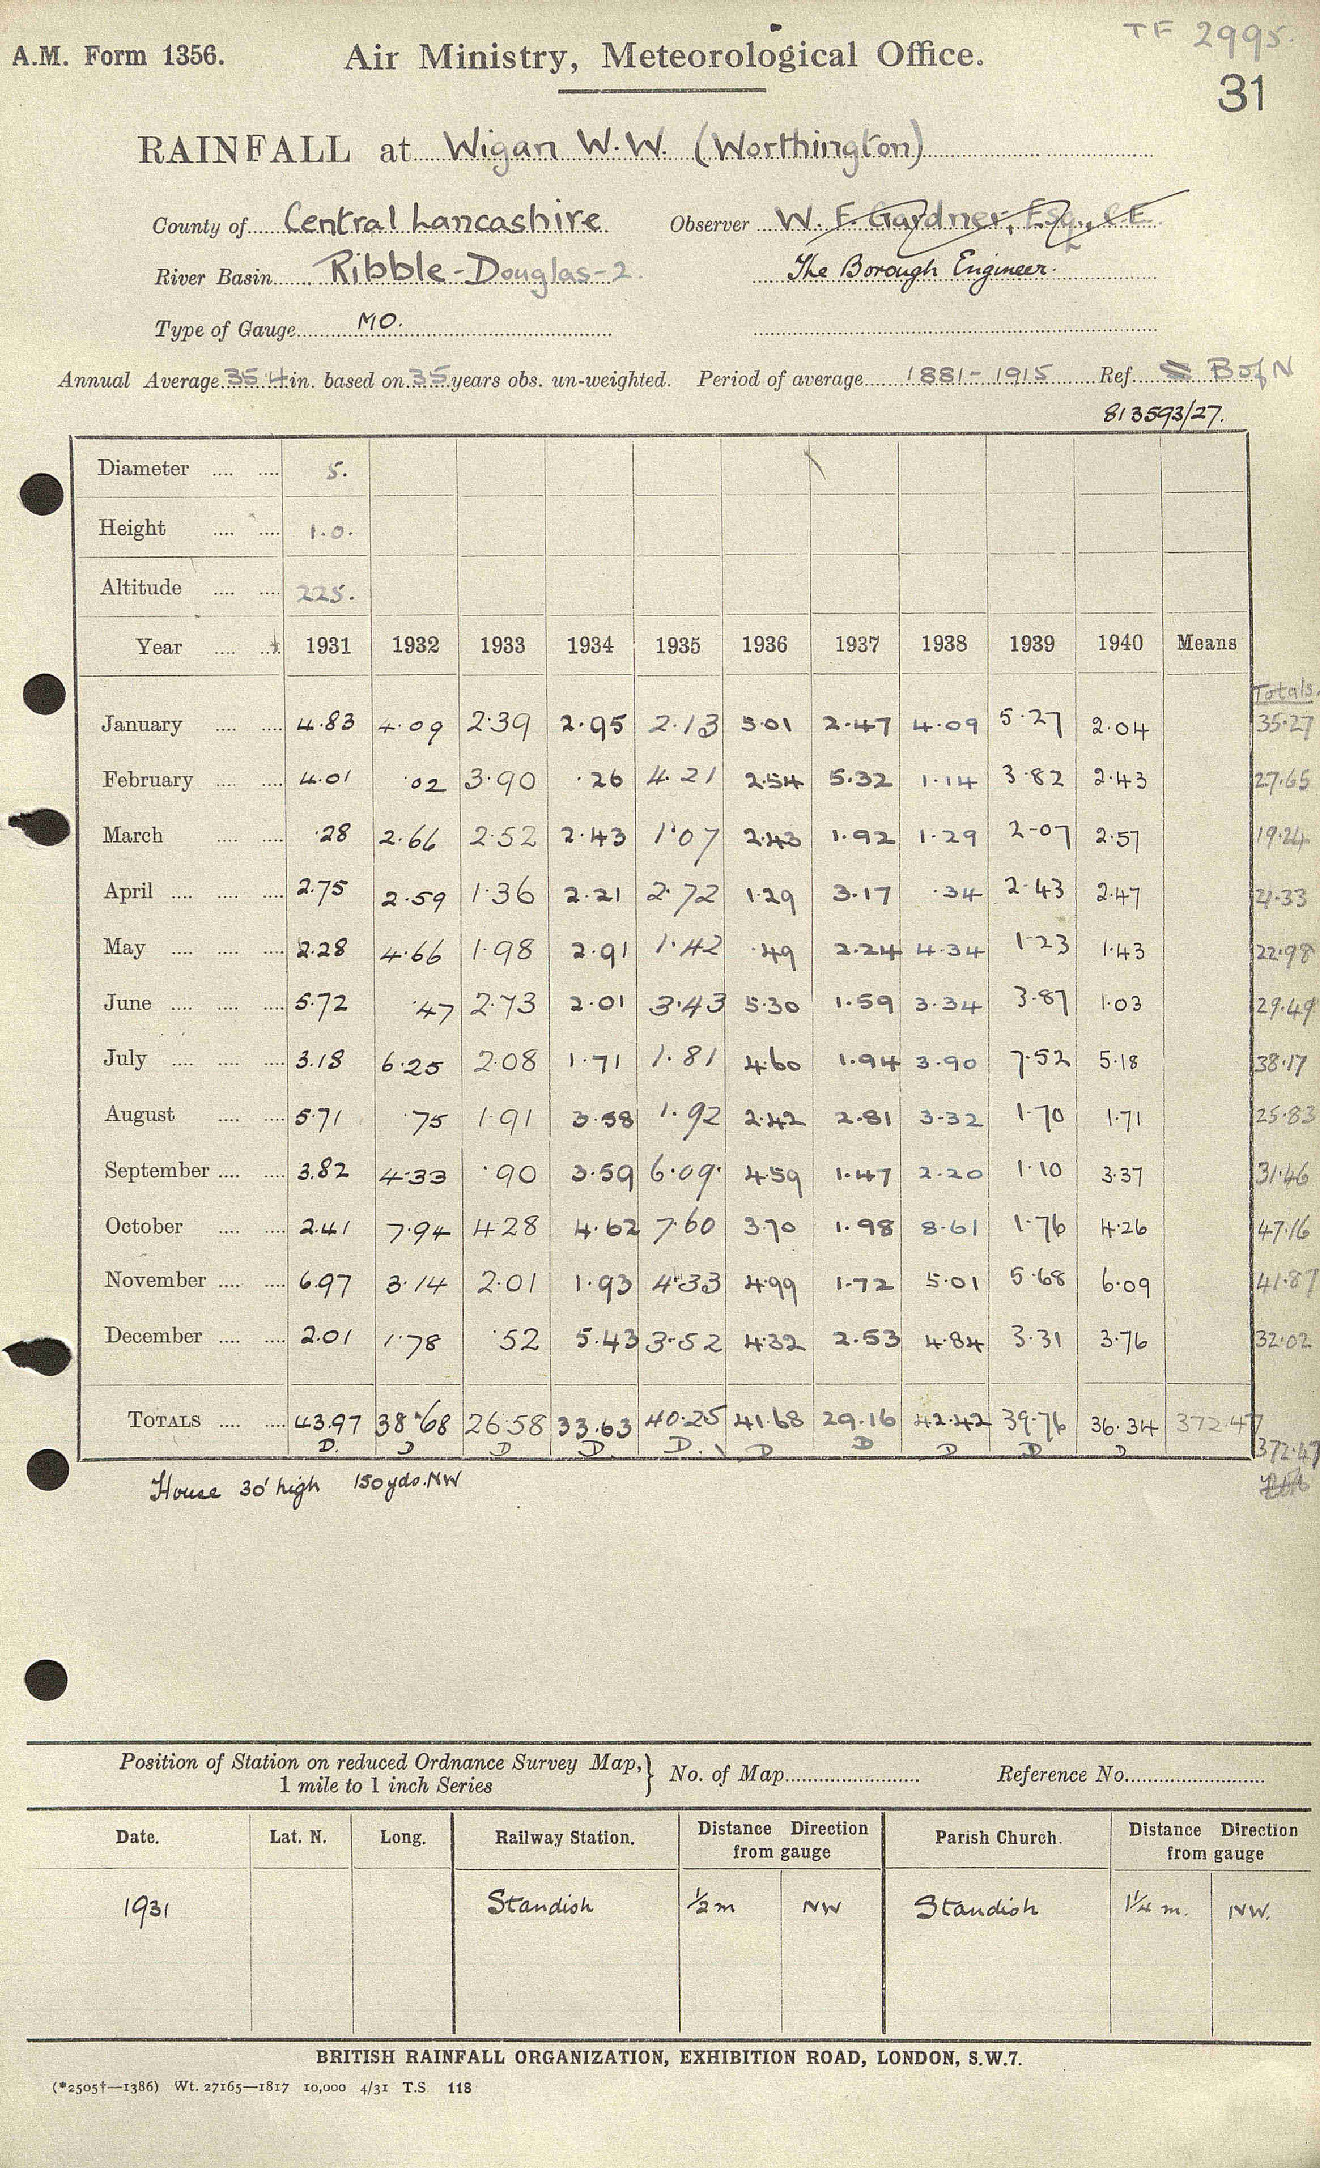 TF 2995.
A.M. Form 1356. Air Ministry, Meteorological Office.
31
RAINFALL at Wigan W.W. (Worthington)
County of Central Lancashire Observer W. F. Gardner, Esq., C.E.
River Basin Ribble-Douglas-2. The Borough Engineer.
Type of Gauge MO.
Annual Average 35.4 in. based on 35 years obs. un-weighted. Period of average 1881-1915 Ref. B of N
813593/27.
Diameter .... .... 5.
Height .... .... 1.0.
Altitude .... .... 225.
Year .... .... 1931 1932 1933 1934 1935 1936 1937 1938 1939 1940 Means
Totals.
January .... .... 4.83 4.09 2.39 2.95 2.13 5.01 2.47 4.09 5.27 2.04 35.27
February .... .... 4.01 .02 3.90 .26 4.21 2.54 5.32 1.14 3.82 2.43 27.65
March .... .... .28 2.66 2.52 2.43 1.07 2.43 1.92 1.29 2.07 2.57 19.24
April .... .... .... 2.75 2.59 1.36 2.21 2.72 1.29 3.17 .34 2.43 2.47 21.33
May .... .... .... 2.28 4.66 1.98 2.91 1.42 .49 2.24 4.34 1.23 1.43 22.98
June .... .... .... 5.72 .47 2.73 2.01 3.43 5.30 1.59 3.34 3.87 1.03 29.49
July .... .... .... 3.18 6.25 2.08 1.71 1.81 4.60 1.94 3.90 7.52 5.18 38.17
August .... .... 5.71 .75 1.91 3.58 1.92 2.42 2.81 3.32 1.70 1.71 25.83
September .... .... 3.82 4.33 .90 3.59 6.09 4.59 1.47 2.20 1.10 3.37 31.46
October .... .... 2.41 7.94 4.28 4.62 7.60 3.70 1.98 8.61 1.76 4.26 47.16
November .... .... 6.97 3.14 2.01 1.93 4.33 4.99 1.72 5.01 5.68 6.09 41.87
December .... .... 2.01 1.78 .52 5.43 3.52 4.32 2.53 4.84 3.31 3.76 32.02
TOTALS .... .... 43.97 38.68 26.58 33.63 40.25 41.68 29.16 42.42 39.76 36.34 372.47
D. D D D. D. D D D D D 372.47
House 30' high 150yds. NW
Position of Station on reduced Ordnance Survey Map, } No. of Map Reference No.
1 mile to 1 inch Series
Date. Lat. N. Long. Railway Station. Distance Direction from gauge Parish Church. Distance Direction from gauge
1931 Standish ½ m NW Standish 1¼ m. NW.
BRITISH RAINFALL ORGANIZATION, EXHIBITION ROAD, LONDON, S.W.7.
(*2505†—1386) Wt. 27165—1817 10,000 4/31 T.S 118